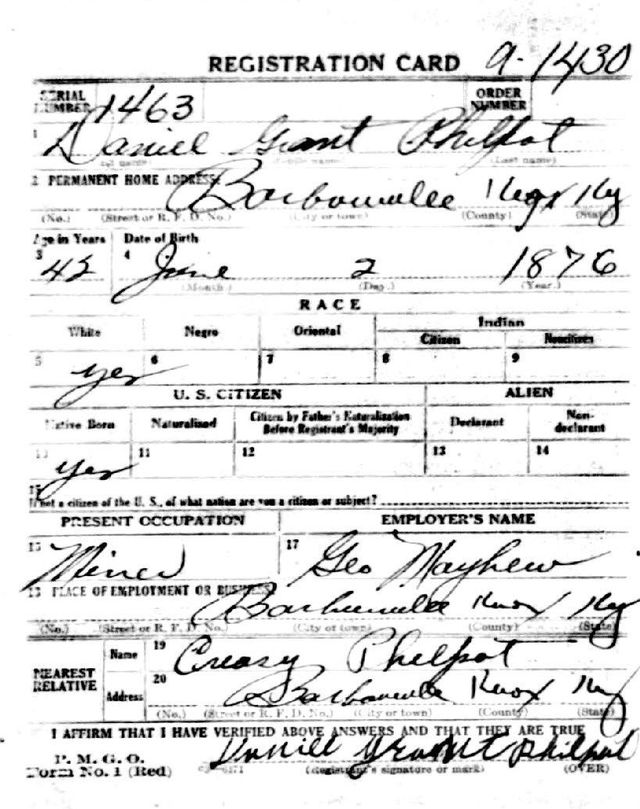 REGISTRATION CARD 9-1430
SERIAL NUMBER 1463 ORDER NUMBER
1 Daniel Grant Philpot
(Last name)
2 PERMANENT HOME ADDRESS: Barbourville Knox Ky
(No.) (Street or R. F. D. No.) (City or town) (County) (State)
Age in Years Date of Birth
3 42 4 June 2 1876
(Month.) (Day.) (Year.)
RACE
White Negro Oriental Indian
Citizen Noncitizen
5 yes 6 7 8 9
U. S. CITIZEN ALIEN
Native Born Naturalized Citizen by Father's Naturalization Before Registrant's Majority Declarant Non-declarant
10 yes 11 12 13 14
15
If not a citizen of the U. S., of what nation are you a citizen or subject?
PRESENT OCCUPATION EMPLOYER'S NAME
16 Miner 17 Geo Mayhew
18 PLACE OF EMPLOYMENT OR BUSINESS: Barbourville Knox Ky
(No.) (Street or R. F. D. No.) (City or town) (County) (State)
NEAREST RELATIVE Name 19 Creasy Philpot
Address 20 Barbourville Knox Ky
(No.) (Street or R. F. D. No.) (City or town) (County) (State)
I AFFIRM THAT I HAVE VERIFIED ABOVE ANSWERS AND THAT THEY ARE TRUE
P. M. G. O. Daniell Grant Philpot
Form No. 1 (Red) (Registrant's signature or mark) (OVER)